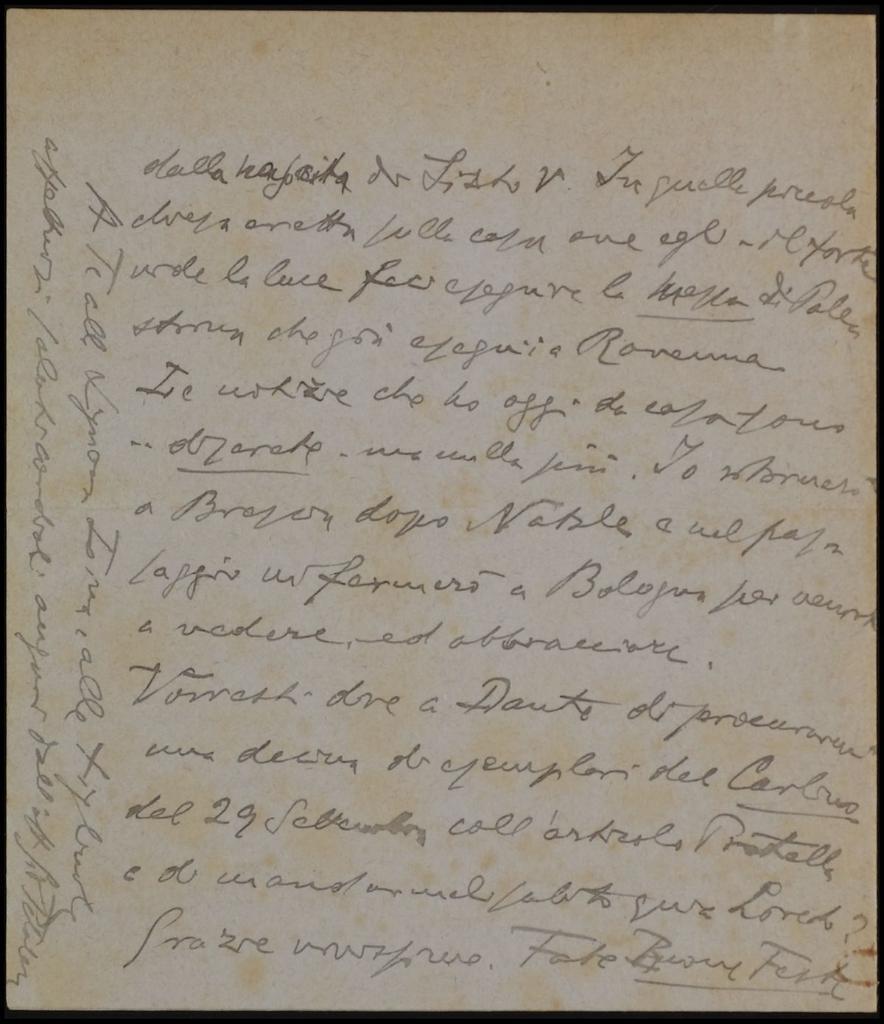 dalla nascita di Sisto V. In quella piccola
chiesa eretta sulla casa ove egli - il forte
vide la luce feci eseguire la messa di Pales
strina che già eseguii a Ravenna
Le notizie che ho oggi da casa sono
- discrete - ma nulla più. Io ritornerò
a Brescia dopo Natale e nel pas
saggio mi fermerò a Bologna per venirti
a vedere, ed abbracciare.
Vorresti dire a Dante di procurarmi
una decina di esemplari del Carlino
del 29 Settembre coll'articolo Pratella
e di mandarmeli subito qui a Loreto?
Grazie vivissime. Fate Buone Feste
A Te alla Signora e alle
affettuosi saluti cordiali auguri dall'aff